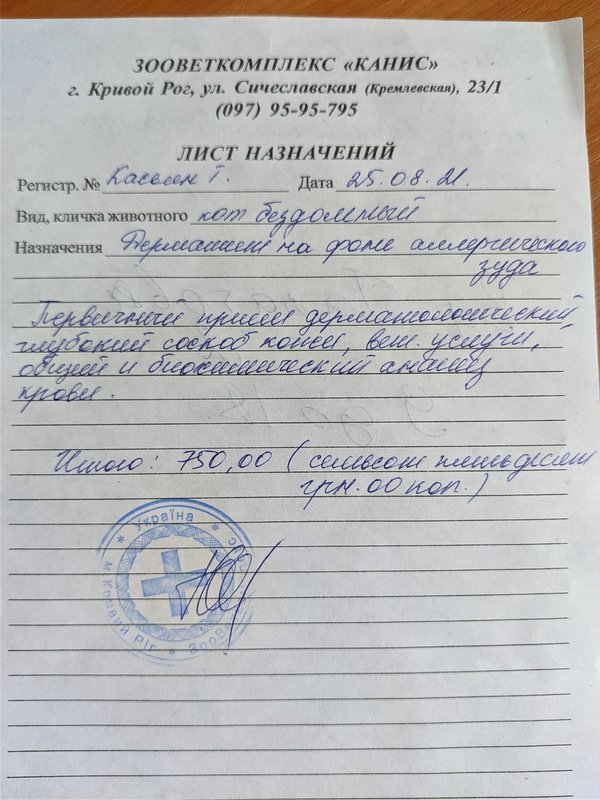 ЗООВЕТКОМПЛЕКС «КАНИС»
г. Кривой Рог, ул. Сичеславская (Кремлевская), 23/1
(097) 95-95-795
ЛИСТ НАЗНАЧЕНИЙ
Регистр. № Касьян Т. Дата 25.08.21.
Вид, кличка животного кот бездомный
Назначения Дерматит на фоне аллергического
зуда
Первичный прием дерматологический,
глубокий соскоб кожи, вет. услуги,
общий и биохимический анализ
крови.
Итого: 750,00 (семьсот пятьдесят
грн. 00 коп.)
* Україна *
м Кривий Ріг * Зоове